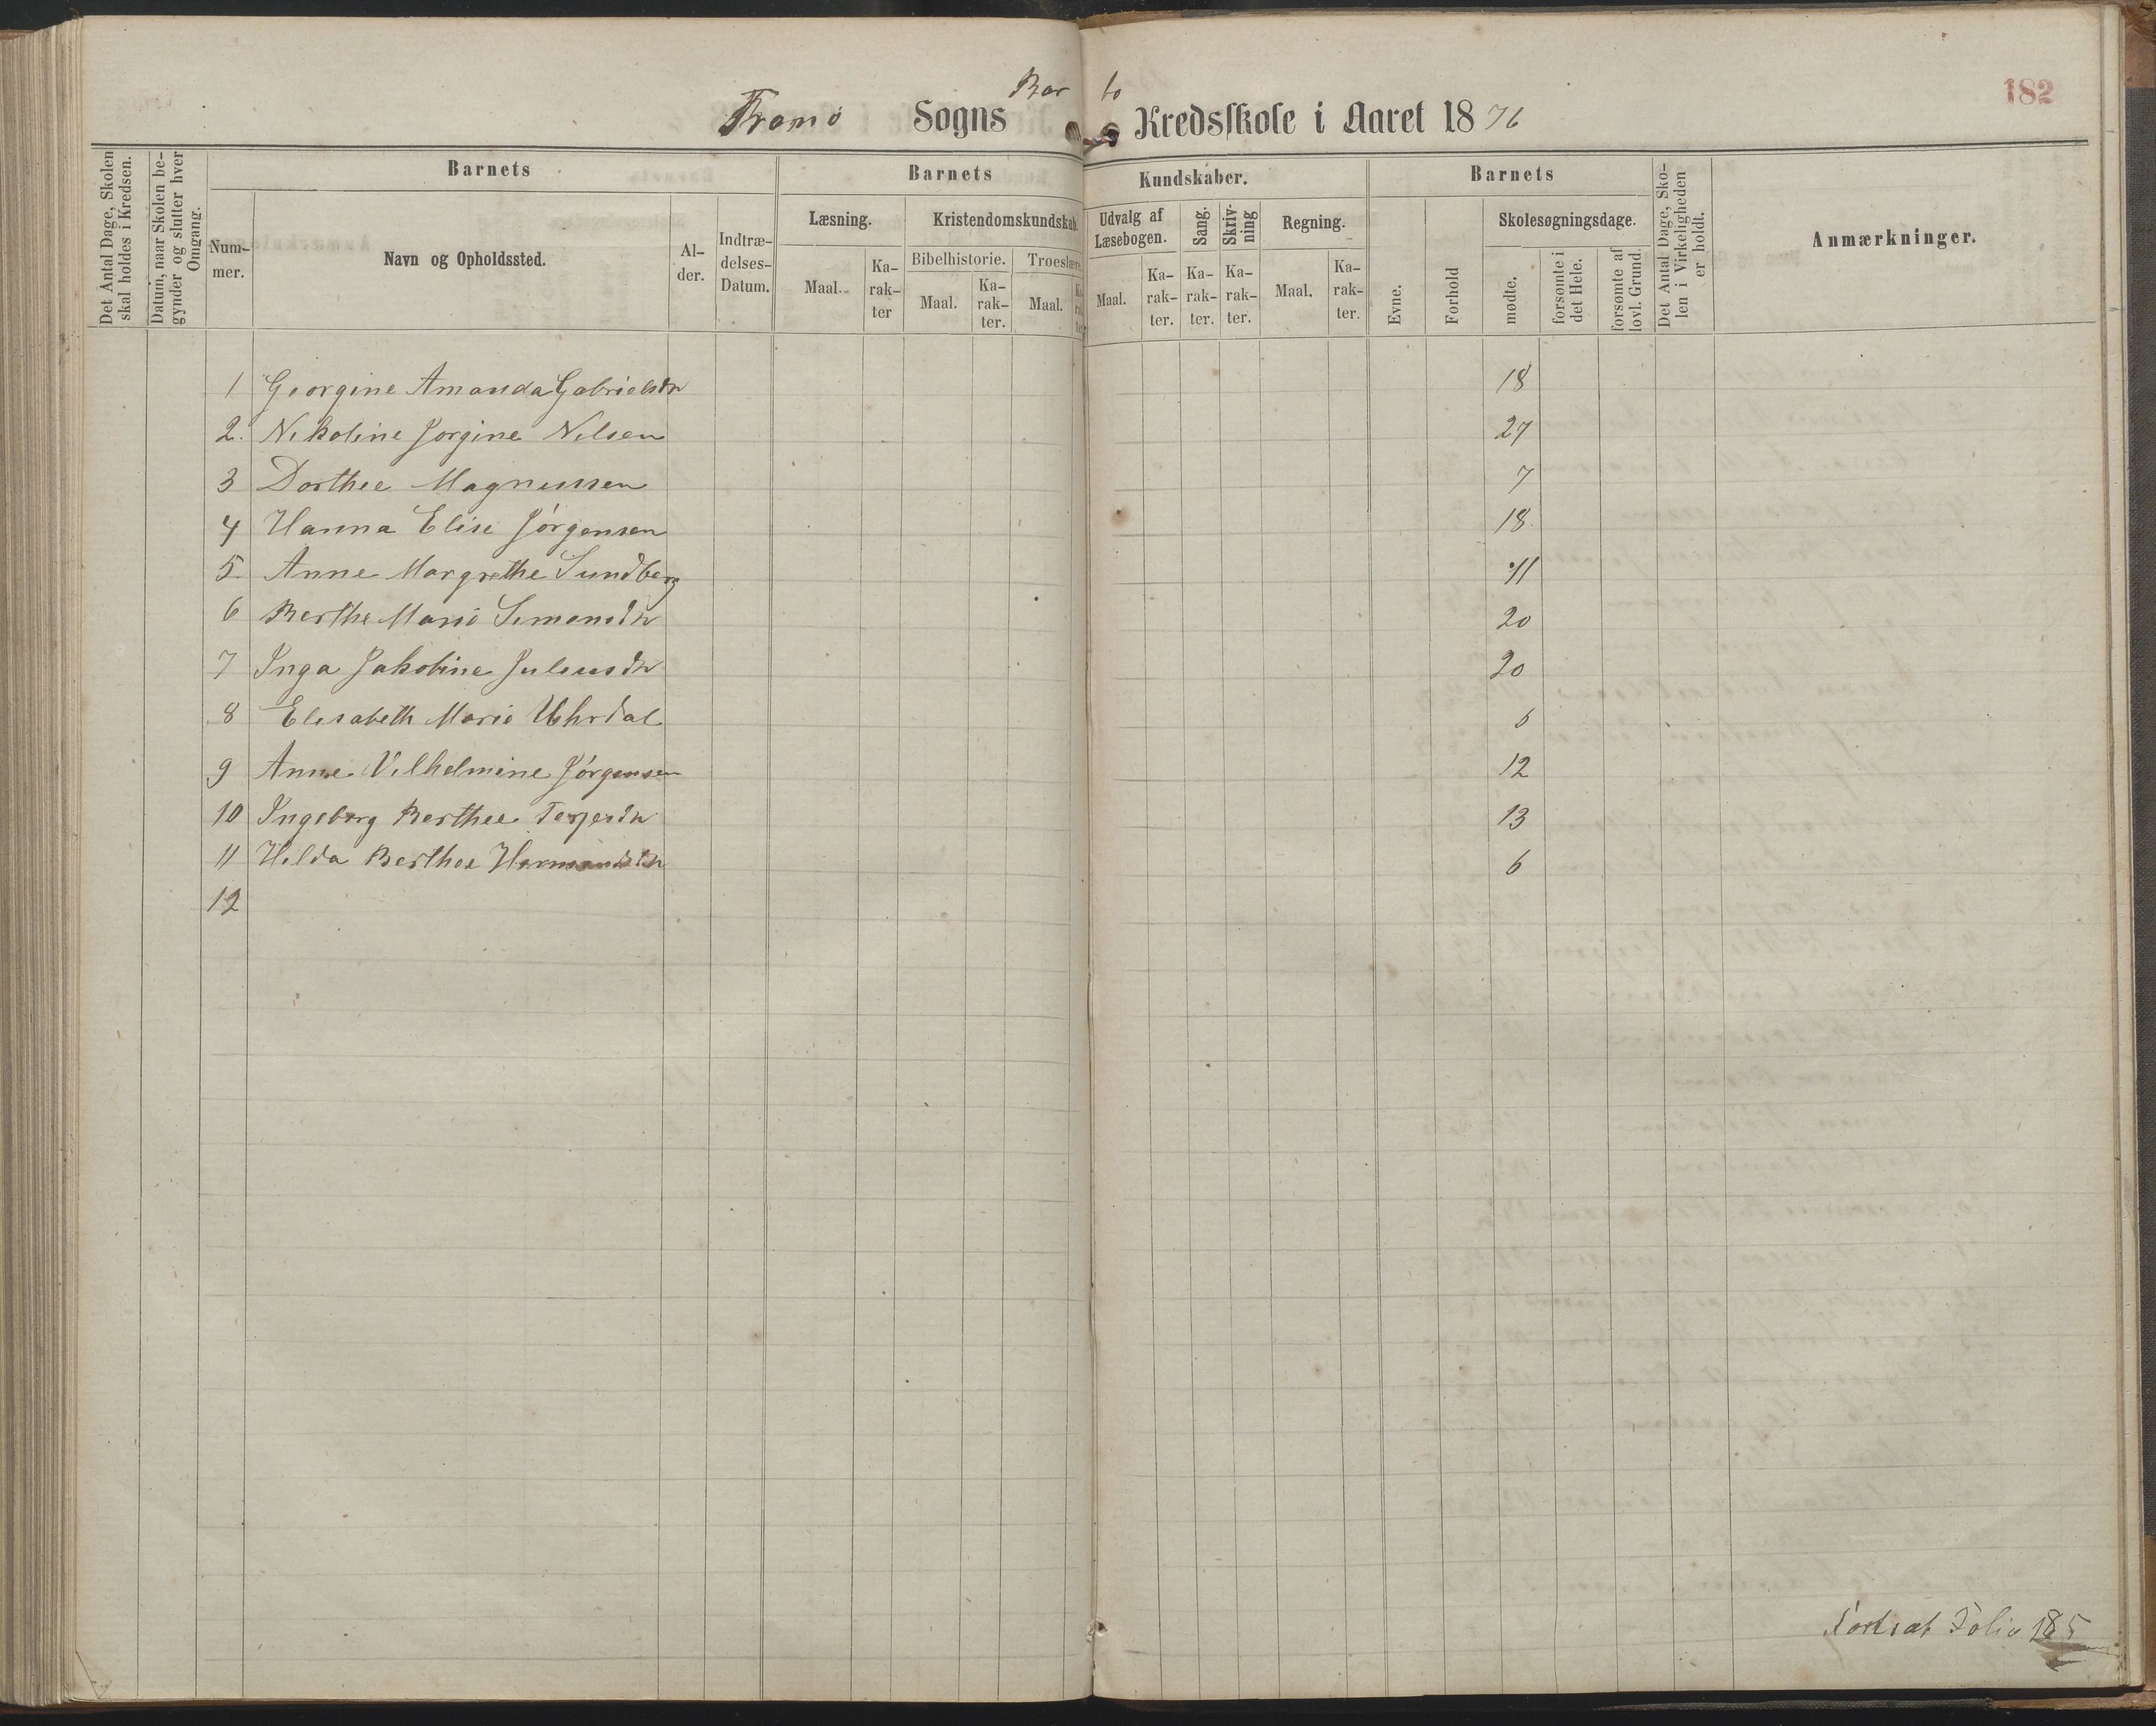 182
Bar bo
Tromø Sogns Kredsskole i Aaret 1876
Det Antal Dage, Skolen skal holdes i Kredsen.
Datum, naar Skolen begynder og slutter hver Omgang.
Barnets
Nummer.
Navn og Opholdssted.
Alder.
Indtrædelses-Datum.
Barnets Kundskaber.
Læsning.
Maal.
Karakter
Kristendomskundskab.
Bibelhistorie.
Maal.
Karakter.
Troeslære.
Maal.
Udvalg af Læsebogen.
Maal.
Karakter.
Sang.
Karakter.
Skrivning
Karakter.
Regning.
Maal.
Karakter.
Barnets
Evne.
Forhold
Skolesøgningsdage.
mødte.
forsømte i det Hele.
forsømte af lovl. Grund.
Det Antal Dage, Skolen i Virkeligheden er holdt.
Anmærkninger.
1 Georgine Amanda Gabrielsdr 18
2. Nikoline Jorgine Nilsen 27
3 Dorthee Magnussen 7
4 Hanna Elise Jörgensen 18
5. Anne Margrethe Sundberg 11
6 Berthe Marie Simonsdr 20
7 Inga Jakobine Juliusdr 20
8 Elisabeth Marie Uhrdal 6
9 Anne Vilhelmine Jörgensen 12
10 Ingeborg Berthee Terjesdr 13
11 Hilda Berthea 6
12
Fortsat Folio 185